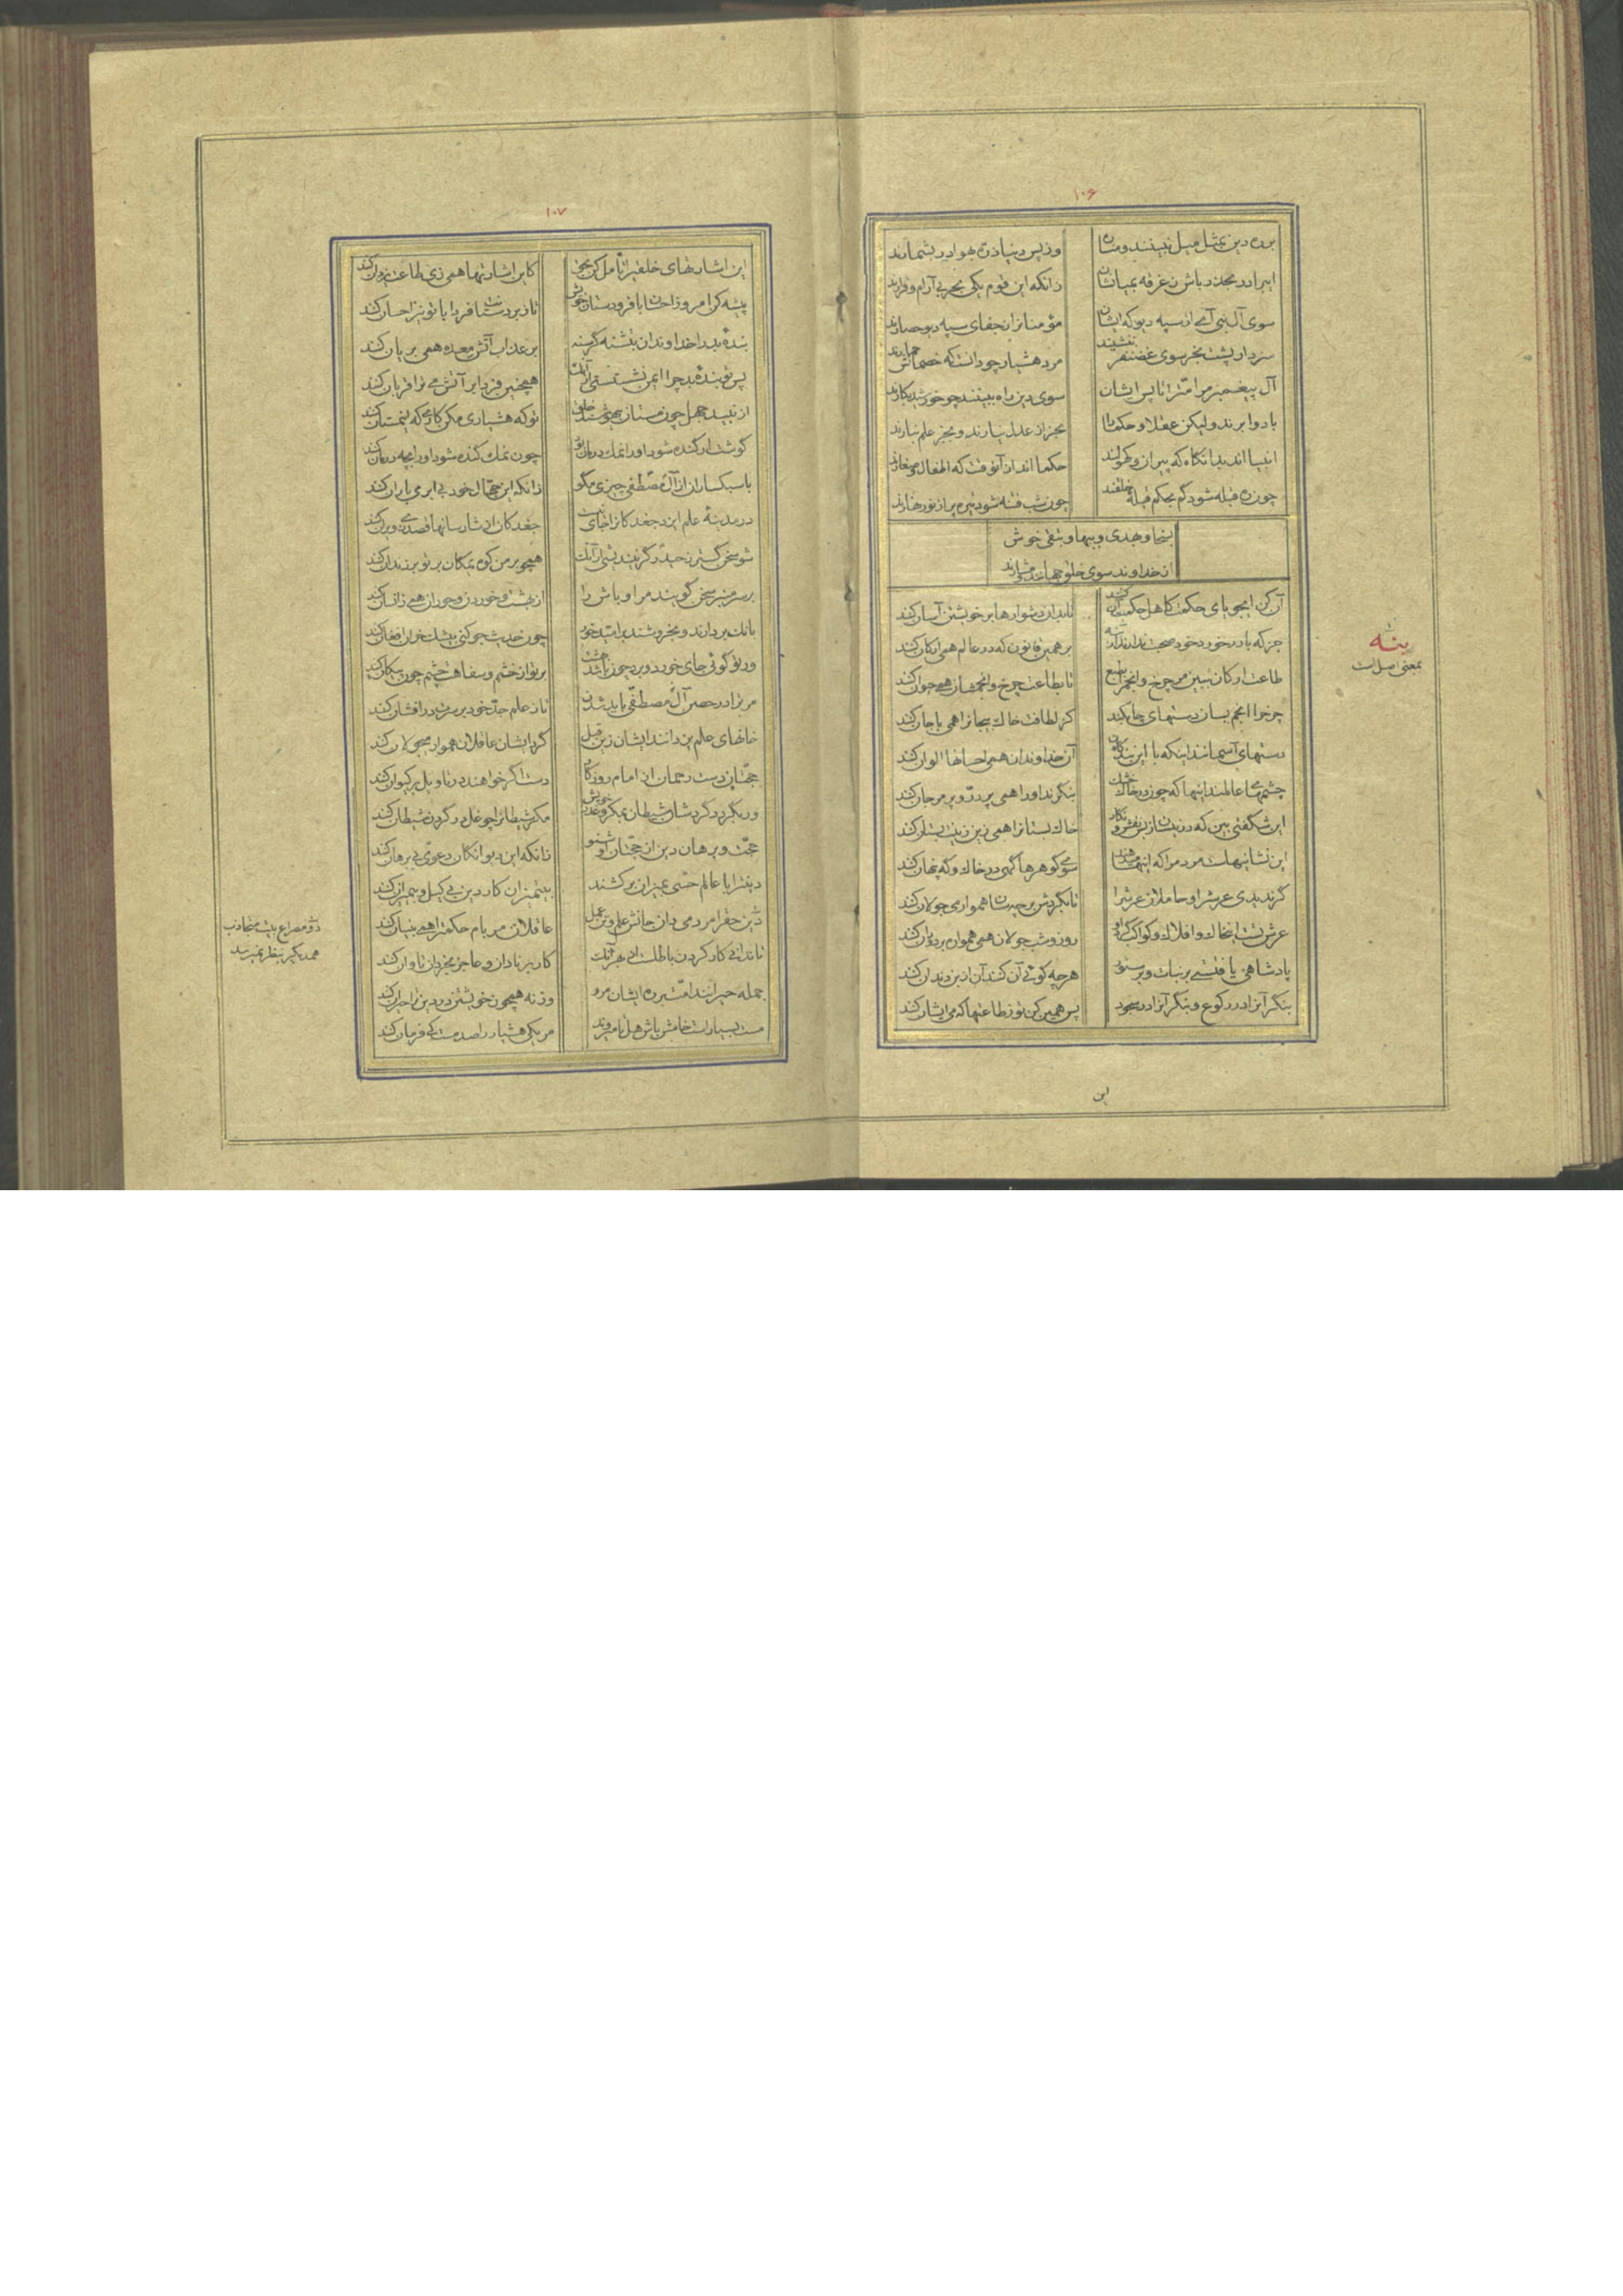 ۱۰۶
بره دین بمثل میل نبینند و مناره
وز پس دنیا ذره هوا در بشمارند
ابر ادر بحذر باش ز غرقه بمیانشان
زانکه این قوم یکی بحر بی آرام و قرارند
سوی آل نبی آمی از سپه دیو که ایشان
مؤمنانرا ز جفای سپه دیو حصارند
سزد ار پشت بخر سوی غضنفر ننشیند
مرد هشیار چو دانست که خصمانش حمارند
آل پیغمبر مر امت را تا پس ایشان
سوی دین راه ببینند چو خورشید بکارند
بادوا برند ولیکن عقلا و حکما را
بجز از عدل نبارند و بجز علم نبارند
انبیا اند بدانگاه که پیران و کهولند
حکما اند از آنوقت که اطفال و صغارند
چون ره قبله شود گم بحکم قبله خلقند
چون شب فتنه شود تیره پر از نور نهارند
بسخا و بهدی و ببها و بتقی خوش
از خداوند سوی خلق جهانند مشارند
آن کن ایجویای حکمت کاهل حکمت آن کنند
تا بدان دشوارها بر خویشتن آسان کند
جز که با در خورد خود صحبت ندارند از بنه
بر همین قانون که در عالم همی ارکان کند
طاعت ارکان ببین مر چرخ و انجم را بطبع
تا بطاعت چرخ و انجمشان همی حیوان کند
چرخ را انجم بسان دستهای چابکند
کز لطافت خاک بیجانرا همی باجان کند
دستهای آسمانند اینکه با این بندگان
آن خداوندان همی احسانها الوان کند
چشمهای عالمند اینها که چون در خاک خشک
بنگرند او را همی پر در و پر مرجان کند
این شگفتی بین که در نیسان ز بس نقش و نگار
خاک بستانرا همی زین زینت بستان کند
این نشانیهاست مردم را که اینها میدهند
سوی گوهرها گهی در خاک و گه پنهان کند
گر ندیدی عرش را و حاملان عرش را
تا بگردش بر چه سان همواره می جولان کند
عرش تست اینخاک و افلاک و کواکب گرد او
روز و شب جولان همی همواره بر دوران کند
پادشاهی یافتستی بر نبات و بر ستور
هر چه گوئی آن کنند آن از بن دندان کند
بنگر آنرا در رکوع و بنگر آنرا در سجود
پس همین کن تو ز طاعتها که می ایشان کند
بنه
بمعنی اصل است
این
۱۰۷
این اشارتهای خلقی را تأمل کن بحق
کاین اشارتها همی زی طاعت یزدان کند
پیشه کن امروز احسان با فرودستان خویش
تا زبردستانت فردا با تو نیز احسان کند
بندهٔ بد را خداوندان بتشنه گرسنه
بر عذاب آتش معده همی بریان کند
پس تو بندهٔ بد چرا ایمن نشستستی از آنک
همچنین فردا بر آتش می ترا قربان کند
از نبید جهل چون مستان بیهوشند خلق
تو که هشیاری مکن کاری که اینمستان کند
گوشت ار گنده شود او را نمک درمان بود
چون نمک گنده شود او را بچه درمان کند
با سبکساران از آل مصطفی چیزی مگو
زانکه این جهال خود بی ابر می باران کند
در مدینهٔ علم ایزد جغدکانرا جای نیست
جغدکان از شارسانها قصدی ویران کند
شو سخن گستر ز حیدر گر نیندیشی از آنک
همچو بر من کوه یمگان بر تو بر زندان کند
بر سر منبر سخن گویند مر اوباش را
از بهشت و خوردن و حوران همی زانسان کند
بانگ بردارند و بخروشند بر امید خورد
چون حدیث جو کنی بیشک خران افغان کند
ور تو گوئی جای خورد و برد چون باشد بهشت
بر تو از خشم و سفاهت چشم چون پیکان کند
مر ترا در حصن آل مصطفی باید شدن
تا ز علم جد خود بر سرت در افشان کند
خانهای علم یزدانند ایشان زین قبل
گرد ایشان عاقلان هموار می جولان کند
حجتان دست رحمان از امام روزگار
دست اگر خواهند در تاویل بر کیوان کند
ور بگردد گردشان شیطان بمکر و غدر خویش
مکر شیطانرا چو غل در گردن شیطان کند
حجت و برهان دین از حجتان او شنو
زانکه این دیوانگان دعوی بی برهان کند
دینشرا با عالم حسی بمیزان برکشند
بیتمیزان کار دین بی کیل و بی میزان کند
دین حق را مردمی دان جانش علم و تن عمل
عاقلان مر بام حکمترا همی بنیان کند
تا ندانی کار کردن باطلست از بهر آنک
کار بر نادان و عاجز بخردان تاوان کند
جمله حیرانند امت بر ره ایشان مرو
ورنه همچون خویشتن در دین ترا حیران کند
مست بسیارست خامش باش هل تا میروند
مر یکی هشیار را صد مست کی فرمان کند
دو مصراع بیت متجاذب
همدیگر بنظر نمیرسد